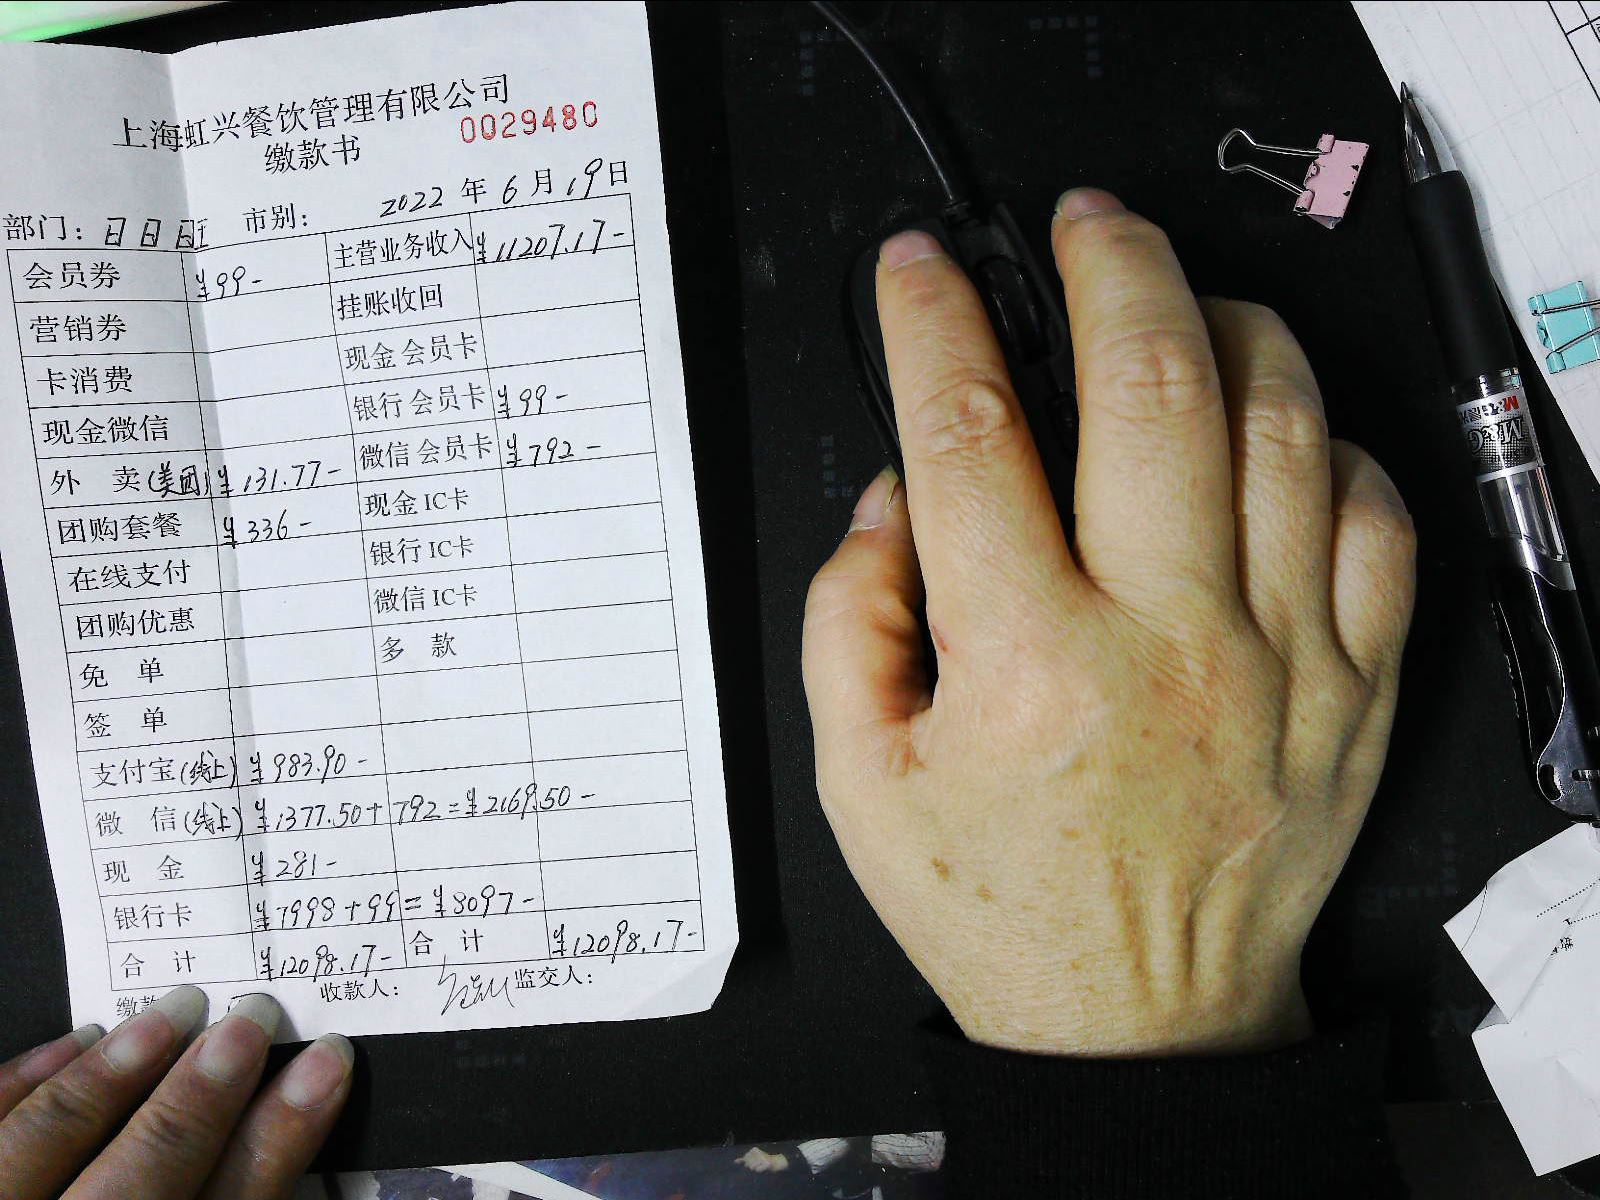 上海虹兴餐饮管理有限公司
0029480
缴款书
2022 年 6 月 19 日
部门: 日日班 市别:
会员券 ¥99- 主营业务收入 ¥11207.17-
营销券 挂账收回
卡消费 现金会员卡
现金微信 银行会员卡 ¥99-
外 卖(美团) ¥131.77- 微信会员卡 ¥792-
团购套餐 ¥336- 现金IC卡
在线支付 银行IC卡
团购优惠 微信IC卡
免 单 多 款
签 单
支付宝(线上) ¥983.90-
微 信(线上) ¥1377.50+792=¥2169.50-
现 金 ¥281-
银行卡 ¥7998+99=¥8097-
合 计 ¥12098.17- 合 计 ¥12098.17-
缴款 收款人: 监交人:
M&G